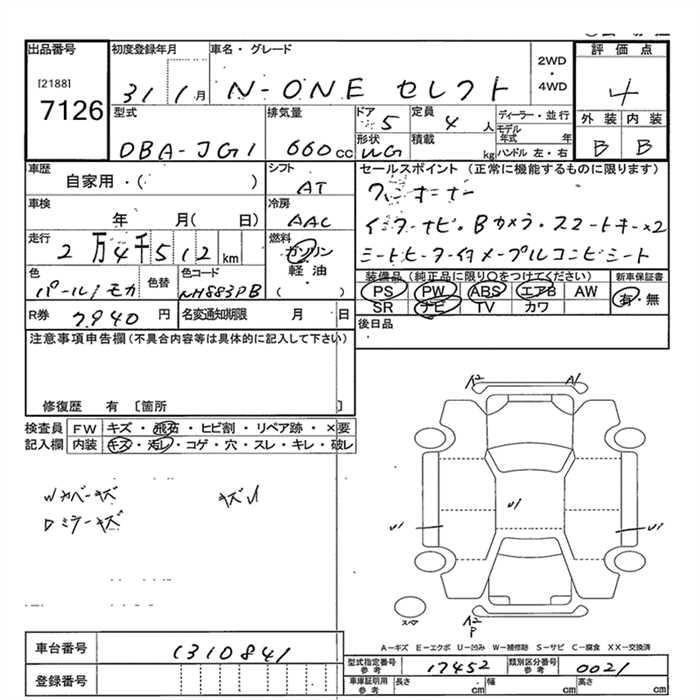 出品番号
[2188]
7126
初度登録年月
31 1 月
車名・グレード
N-ONE セレクト
2WD
・
4WD
評価点
4
外装 内装
B B
型式
DBA-JG1
排気量
660 cc
ドア 5
定員 4 人
形状 WG
積載 kg
ディーラー・並行
モデル年式 年
ハンドル 左・右
車歴
自家用・( )
シフト
AT
セールスポイント (正常に機能するものに限ります)
ワンオーナー
インターナビ・Bカメラ・スマートキー×2
シートヒーター
コンビシート
車検
年 月( 日)
冷房
AAC
走行
2 万 4 千 5 1 2 km
燃料
ガソリン
軽油
( )
色
パール/モカ
色替
色コード
NH883PB
装備品 (純正品に限り○をつけてください)
PS PW ABS エアB AW
SR ナビ TV カワ
新車保証書
有・無
R券 7,940 円
名変通知期限 月 日
後日品
注意事項申告欄(不具合内容等は具体的に記入して下さい)
修復歴 有 〔箇所 〕
検査員 FW キズ・飛石・ヒビ割・リペア跡・×要
記入欄 内装 キズ・汚レ・コゲ・穴・スレ・キレ・破レ
Wカバーキズ
Dミラーキズ
キズ小
A2 A1
U1
U1 U1
A2
P
スペア
A-キズ E-エクボ U-凹み W-補修跡 S-サビ C-腐食 XX-交換済
車台番号 1310841
登録番号
型式指定番号 参考 17452
類別区分番号 参考 0021
車庫証明用 参考 長さ cm 幅 cm 高さ cm